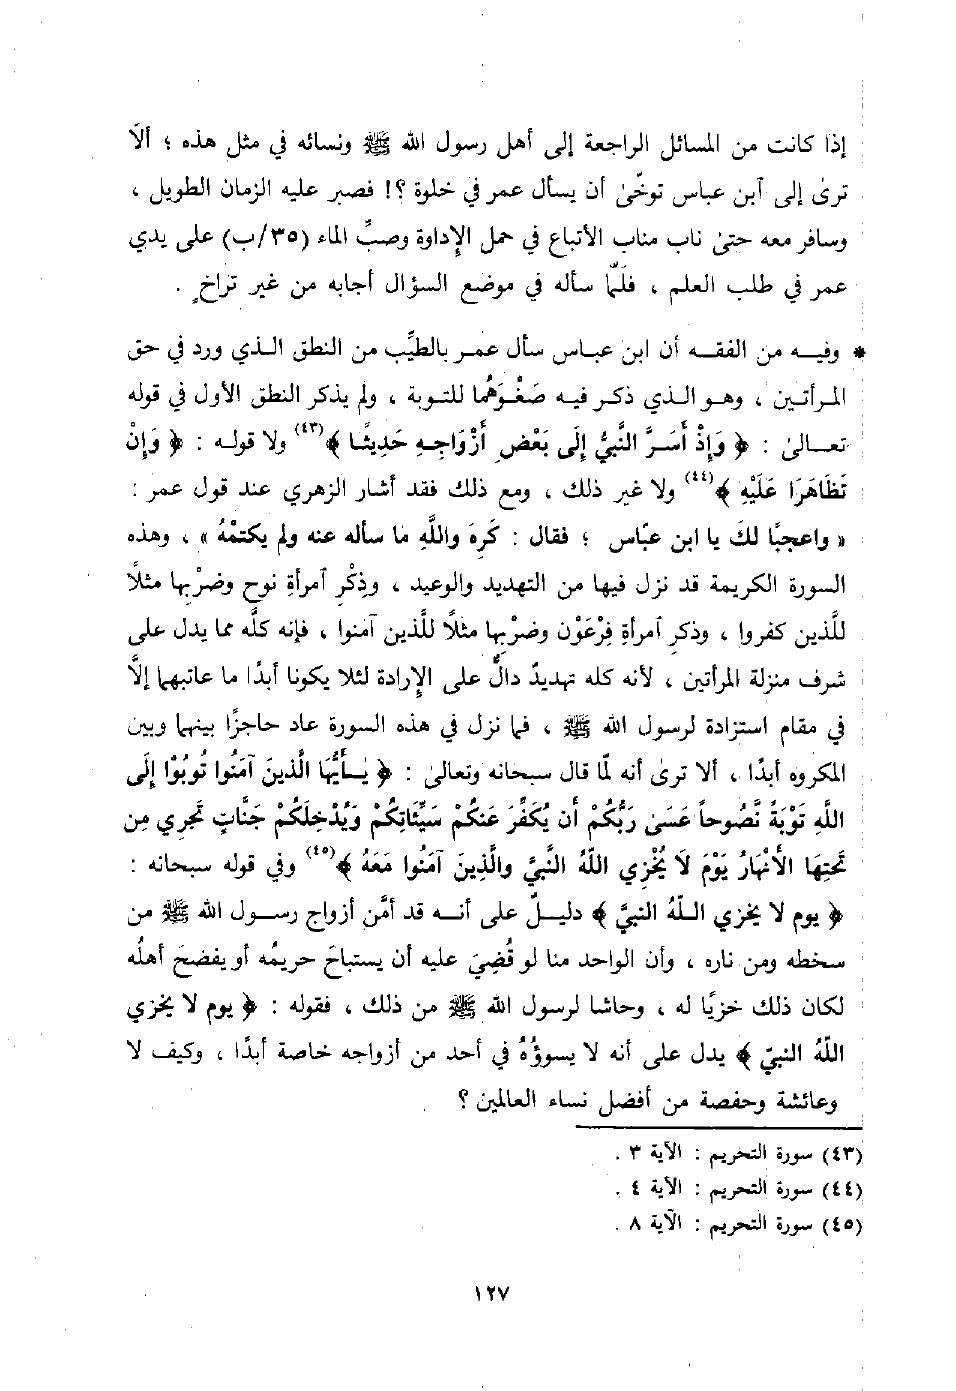 إذا كانت من المسائل الراجعة إلى أهل رسول الله ﷺ ونسائه في مثل هذه ؛ ألَا
ترىٰ إلى آبن عباس توخّىٰ أن يسأل عمر في خلوة ؟! فصبر عليه الزمان الطويل ،
وسافر معه حتىٰ ناب مناب الأتباع في حمل الإداوة وصبِّ الماء (٣٥/ب) على يدي
عمر في طلب العلم ، فلَمَّا سأله في موضع السؤال أجابه من غير تراخٍ .
* وفيه من الفقه أن ابن عباس سأل عمر بالطيِّب من النطق الذي ورد في حق
المرأتين ، وهو الذي ذكر فيه صَغْوَهُما للتوبة ، ولم يذكر النطق الأول في قوله
تعالىٰ : ﴿ وَإِذْ أَسَرَّ النَّبِيُّ إِلَى بَعْضِ أَزْوَاجِهِ حَدِيثًا ﴾(٤٣) ولا قوله : ﴿ وَإِنْ
تَظَاهَرَا عَلَيْهِ ﴾(٤٤) ولا غير ذلك ، ومع ذلك فقد أشار الزهري عند قول عمر :
« واعجبًا لكَ يا ابن عبّاس ؛ فقال : كَرِهَ واللَّهِ ما سأله عنه ولم يكتمْهُ » ، وهذه
السورة الكريمة قد نزل فيها من التهديد والوعيد ، وذِكْرِ آمرأةِ نوح وضرْبِها مثلًا
للَّذين كفروا ، وذكرِ آمرأةِ فِرْعَوْن وضرْبِها مثلًا للَّذين آمنوا ، فإنه كلَّه مما يدل على
شرف منزلة المرأتين ، لأنه كله تهديدٌ دالٌّ على الإرادة لئلا يكونا أبدًا ما عاتبهما إلَّا
في مقام استزادة لرسول الله ﷺ ، فما نزل في هذه السورة عاد حاجزًا بينهما وبين
المكروه أبدًا ، ألا ترىٰ أنه لمّا قال سبحانه وتعالىٰ : ﴿ يَـٰأَيُّهَا الَّذينَ آمَنُوا تُوبُوْا إِلَى
اللَّهِ تَوْبَةً نَّصُوحاً عَسَىٰ رَبُّكُمْ أَن يُكَفِّرَ عَنكُمْ سَيِّئَاتِكُمْ وَيُدْخِلَكُمْ جَنَّاتٍ تَجرِي مِن
تَحتِهَا الأَنْهَارُ يَوْمَ لَا يُخْزِي اللَّهُ النَّبيَّ والَّذِينَ آمَنُوا مَعَهُ ﴾(٤٥) وفي قوله سبحانه :
﴿ يوم لا يخزي اللَّهُ النبيَّ ﴾ دليلٌ على أنه قد أمَّن أزواج رسول الله ﷺ من
سخطه ومن ناره ، وأن الواحد منا لو قُضِيَ عليه أن يستباحَ حريمُه أو يفضحَ أهلُه
لكان ذلك خزيًا له ، وحاشا لرسول الله ﷺ من ذلك ، فقوله : ﴿ يوم لا يخزي
اللّهُ النبيّ ﴾ يدل على أنه لا يسوؤُهُ في أحد من أزواجه خاصة أبدًا ، وكيف لا
وعائشة وحفصة من أفضل نساء العالمين ؟
(٤٣) سورة التحريم : الآية ٣ .
(٤٤) سورة التحريم : الآية ٤ .
(٤٥) سورة التحريم : الآية ٨ .
١٢٧